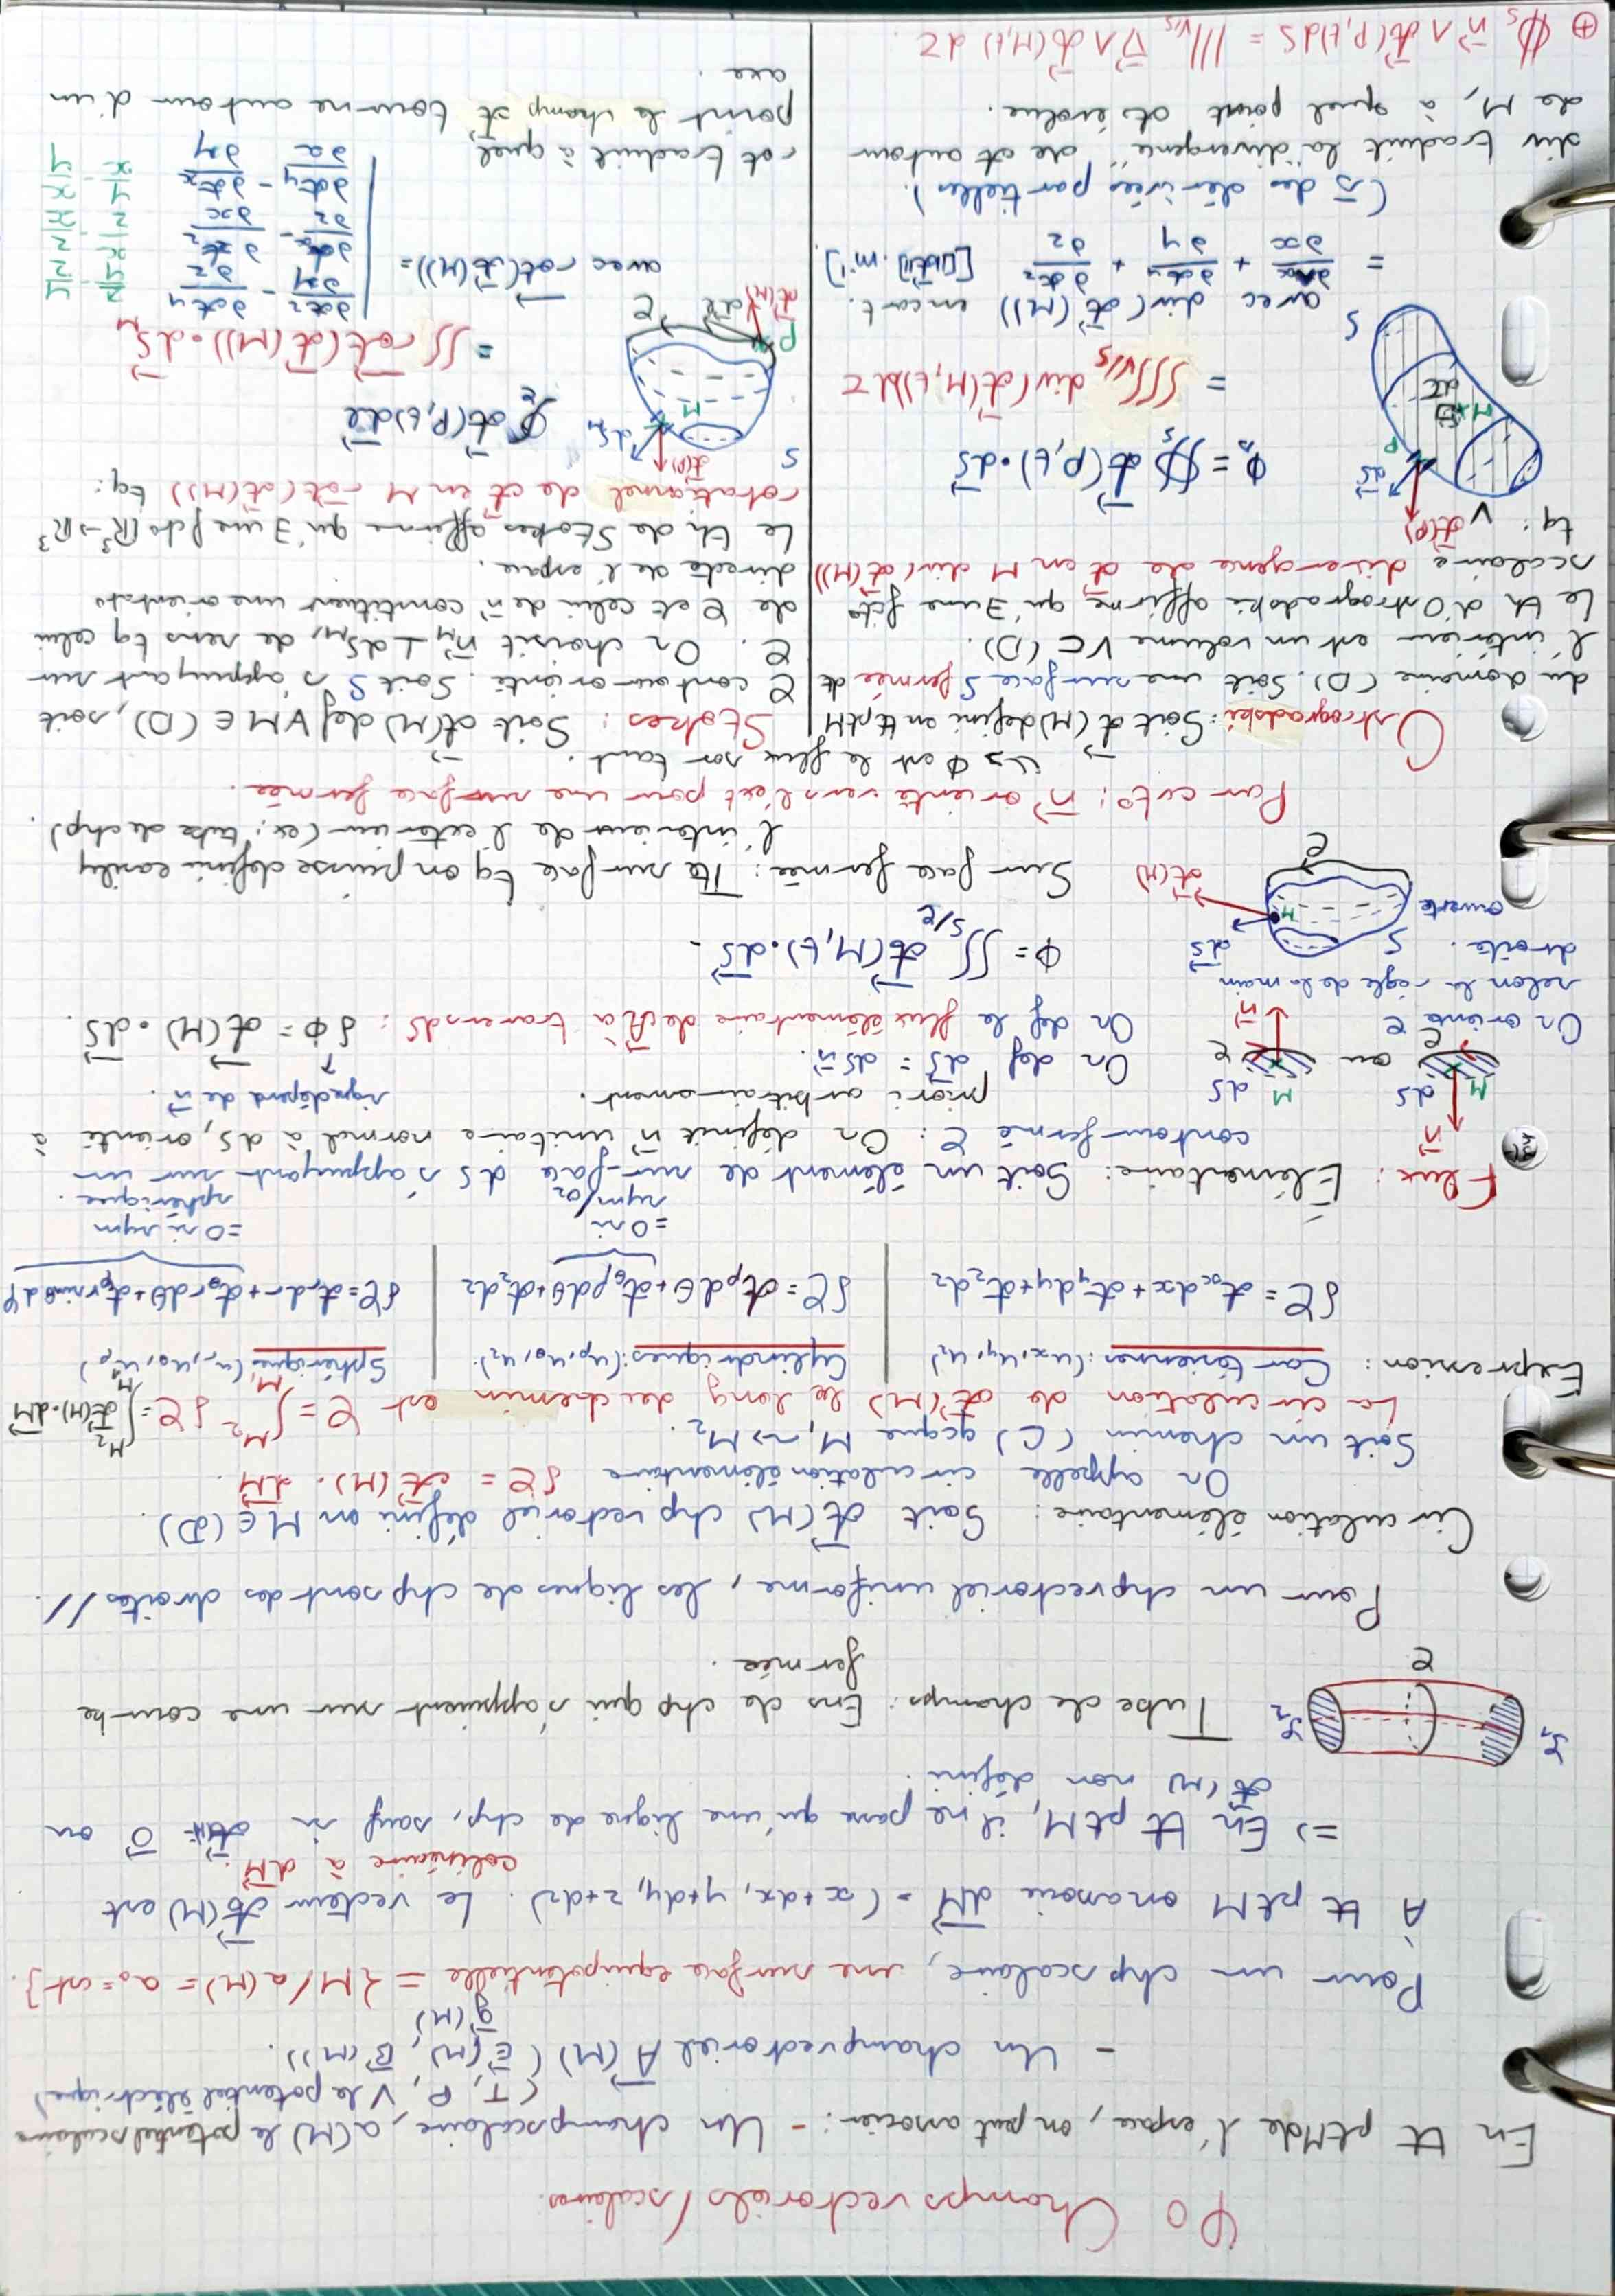 φ0 Champs vectoriels / scalaires.
En tt pt M de l'espace, on peut associer : - Un champ scalaire, a(M) le potentiel scalaire
(T, P, V le potentiel électrique)
- Un champ vectoriel A⃗(M) (E⃗(M), B⃗(M)).
g⃗(M)
Pour un chp scalaire, une surface equipotentielle = {M / a(M) = a₀ = cst}.
À tt pt M on associe dM⃗ = (x+dx, y+dy, z+dz). Le vecteur A⃗(M) est
colinéaire à dM⃗.
=> En tt pt M, il ne passe qu'une ligne de chp, sauf si A⃗(M) = 0⃗ ou
A⃗(M) non défini.
S₁ S₂ C
Tube de champs : Ens de chp qui s'appuient sur une courbe
fermée.
Pour un chp vectoriel uniforme, les lignes de chp sont des droites //.
Circulation élémentaire : Soit A⃗(M) chp vectoriel défini en M ∈ (D)
On appelle circulation élémentaire δC = A⃗(M). dM⃗.
Soit un chemin (C) qcque M₁ ~> M₂.
La circulation de A⃗(M) le long du chemin est C = ∫_M₁^M₂ δC = ∫_M₁^M₂ A⃗(M).dM⃗
Expression : Cartésiennes : (ux, uy, uz) | Cylindriques : (uρ, uθ, uz). | Sphérique (ur, uθ, uφ)
δC = Ax dx + Ay dy + Az dz | δC = Aρ dρ + Aθ ρ dθ + Az dz | δC = Ar dr + Aθ r dθ + Aφ r sinθ dφ
= 0 si sym / Oz
= 0 si sym sphérique.
Flux : Élémentaire : Soit un élément de surface dS s'appuyant sur un
contour fermé C : On définit n⃗ unitaire normal à dS, orienté à
priori arbitrairement.
signe dépend de n⃗.
n⃗ M dS C ou M dS C n⃗
On def dS⃗ = dS n⃗.
On oriente C
selon la règle de la main
droite.
On def le flux élémentaire de A⃗ à travers dS : δΦ = A⃗(M) • dS⃗.
Φ = ∬_S/C A⃗(M,t) • dS⃗.
S ouverte dS⃗ M A⃗(M) C
Surface fermée : Tte surface tq on puisse definir easily
l'intérieur de l'extérieur (ex : tube de chp)
Par cvt° : n⃗ orienté vers l'ext pour une surface fermée.
Φ est le flux sortant.
Ostrogradski : Soit A⃗(M) defini en tt pt M
du domaine (D). Soit une surface S fermée dt
l'intérieur est un volume V ⊂ (D).
Le th d'Ostrogradski affirme qu'∃ une fcto
scalaire divergence de A⃗ en M div(A⃗(M))
tq :
V A⃗(P) dS⃗ P M dτ S
Φs = ∯_S A⃗(P,t) • dS⃗
= ∭_V/S div(A⃗(M,t)) dτ
avec div(A⃗(M)) en cart.
= ∂Ax/∂x + ∂Ay/∂y + ∂Az/∂z [[A].m⁻¹]
(Σ des dérivées partielles).
div traduit la "divergence" de A⃗ autour
de M, à quel point A⃗ évolue.
⊕ ∯_S n⃗ ∧ A⃗(P,t) dS = ∭_V/S ∇⃗ ∧ A⃗(M,t) dτ.
Stokes : Soit A⃗(M) def ∀M ∈ (D), soit
C contour orienté. Soit S s'appuyant sur
C. On choisit n⃗_M ⊥ dS_M, de sens tq celui
de C et celui de n⃗ constituent une orientat°
directe de l'espace.
Le th de Stokes affirme qu'∃ une fcto (R³→R³)
rotationnel de A⃗ en M rot⃗(A⃗(M)) tq :
S A⃗(M) dS⃗_M M P A⃗(P) dℓ⃗ C
∮_C A⃗(P,t) dℓ⃗
= ∬ rot⃗(A⃗(M)) • dS⃗_M
avec rot⃗(A⃗(M)) =
∂Az/∂y - ∂Ay/∂z
∂Ax/∂z - ∂Az/∂x
∂Ay/∂x - ∂Ax/∂y
z/y - y/z
x/z - z/x
y/x - x/y
rot traduit à quel
point le champ A⃗ tourne autour d'un
axe.